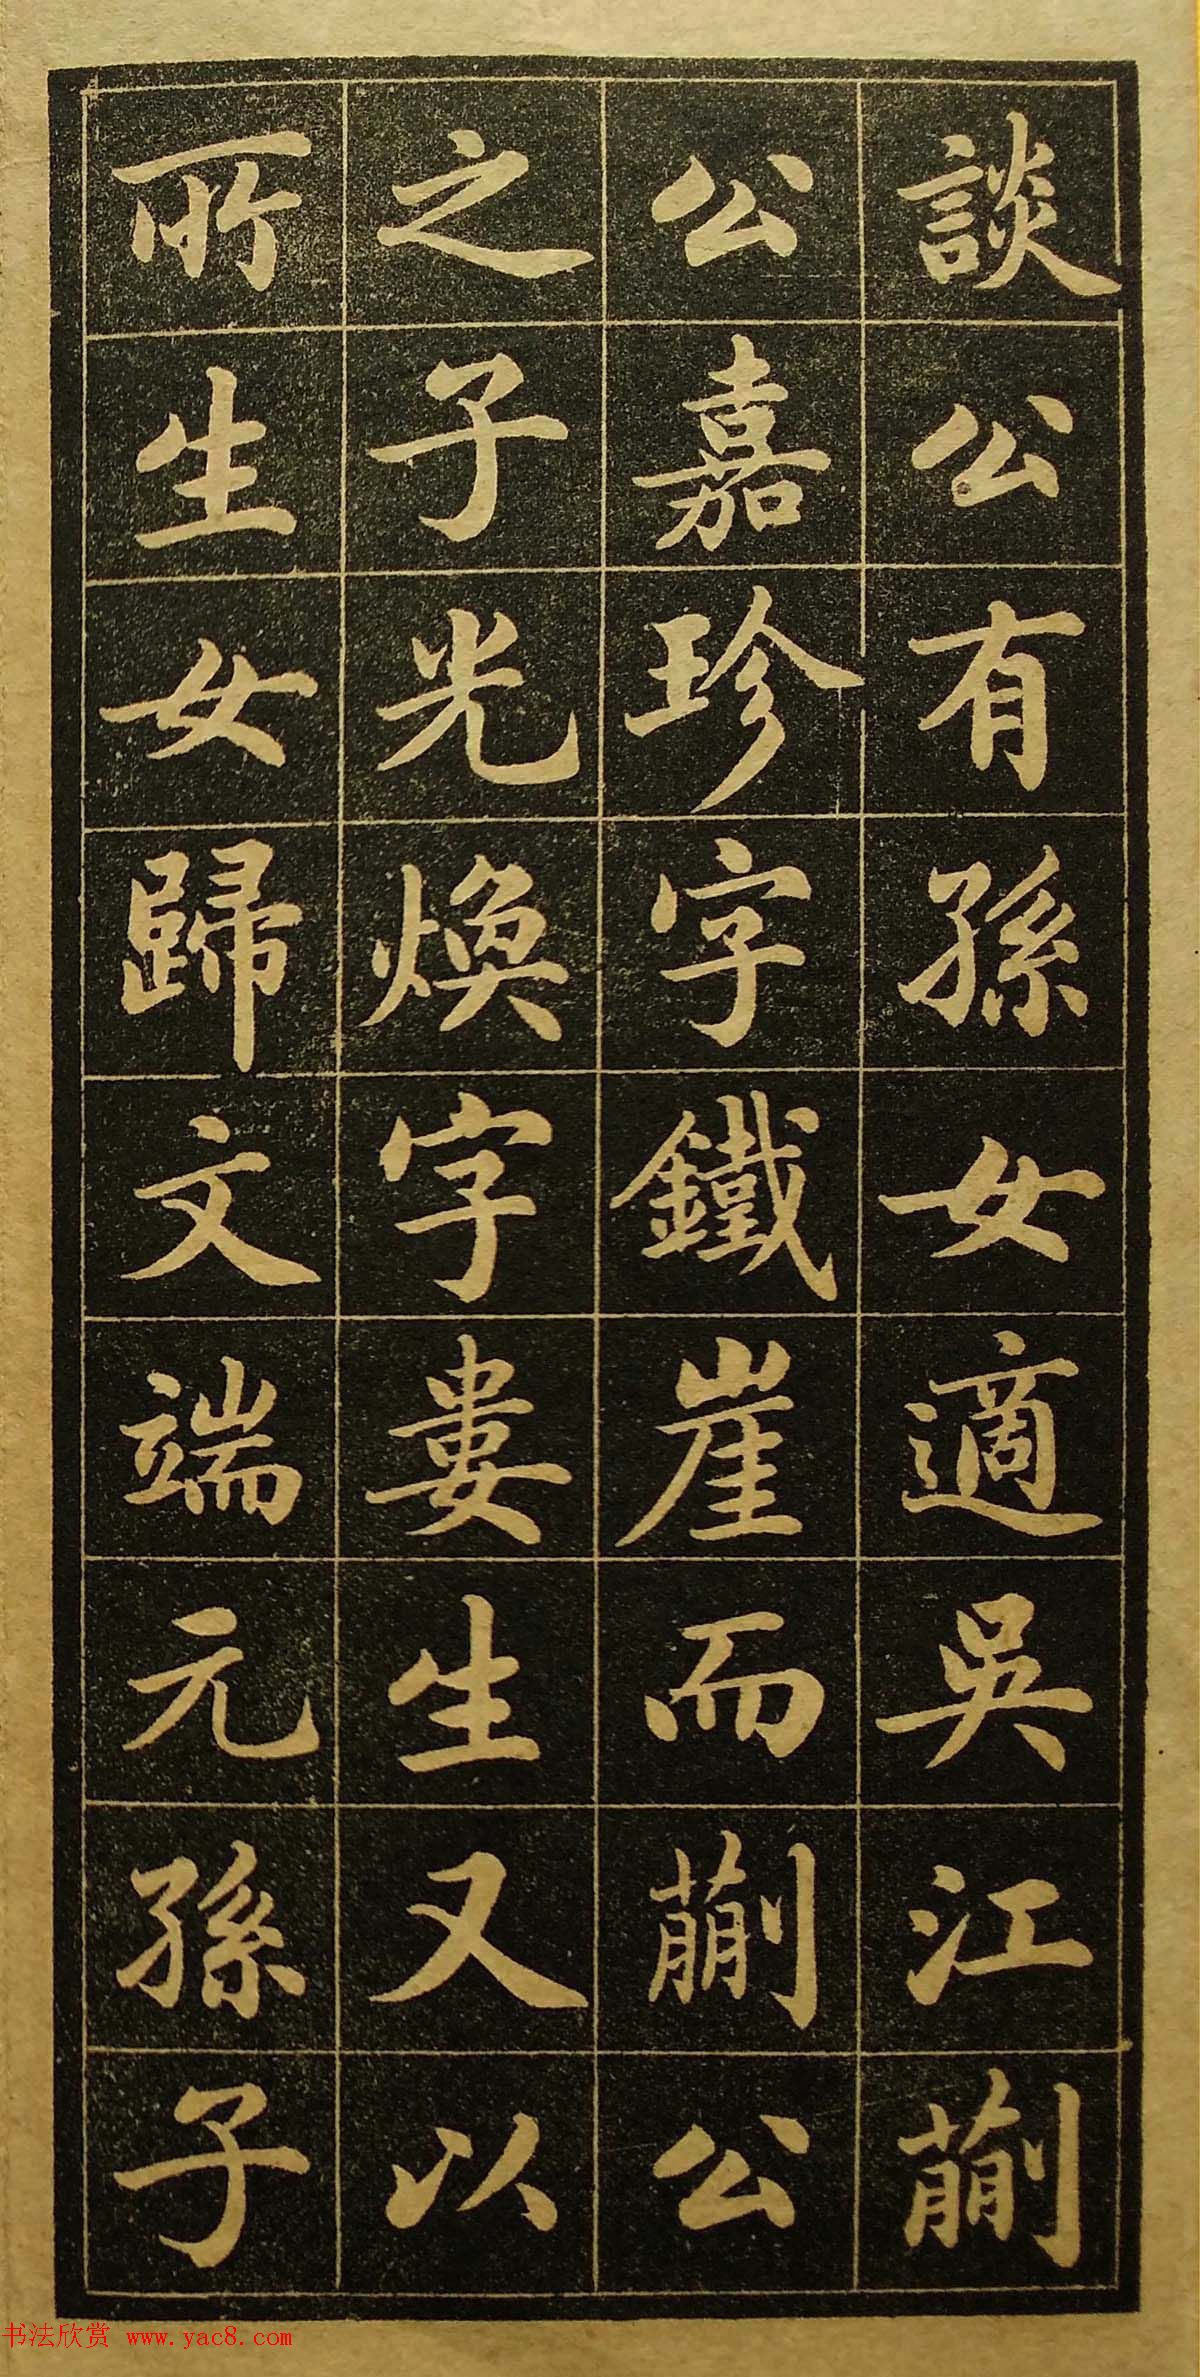 談公有孫女適吳江蒯
公嘉珍字鐵崖而蒯公
之子光煥字婁生又以
所生女歸文端元孫子
书法欣赏 www.yac8.com